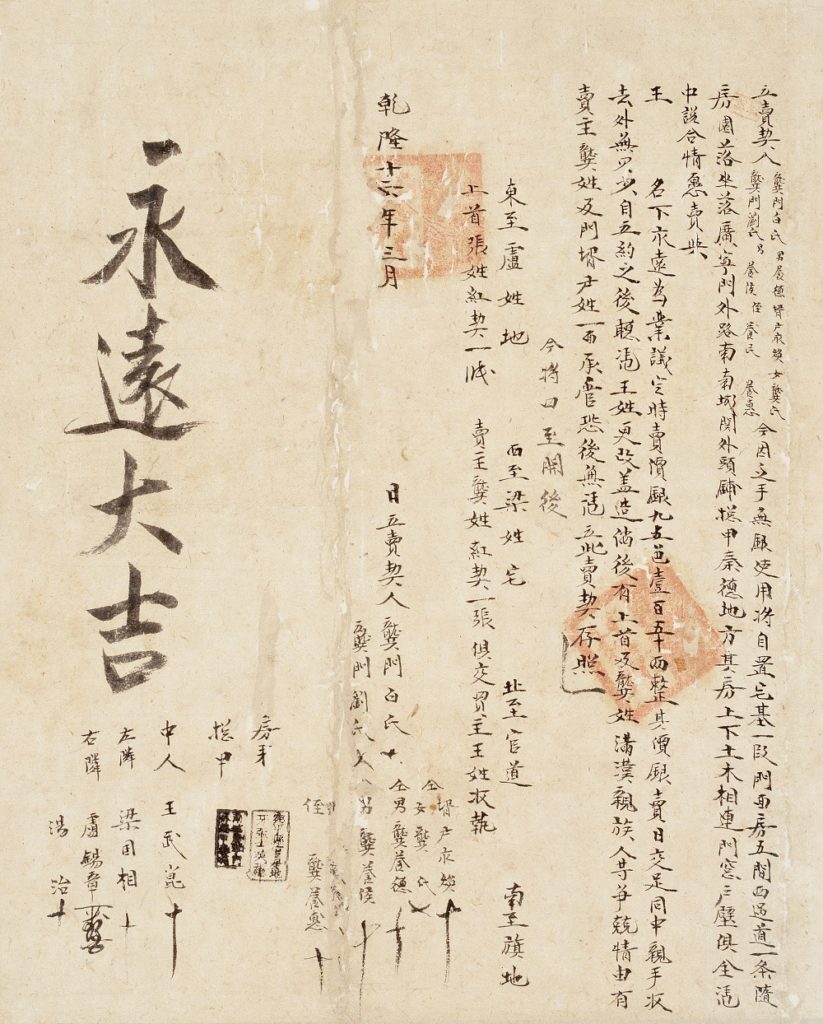 立賣契人龔門白氏男養德壻尹永煥女龔氏
龔門劉氏男養俊侄養民養惠今因乏手無銀使用將自置宅基一段門面房五間西過道一条隨
房園落坐落廣寧門外路南南城関外頭鋪总甲秦德地方其房上下土木相連門窓戶壁俱全憑
中說合情愿賣與
王名下永遠為業議定時賣價銀九五色壹百五十両整其價銀賣日交足同中親手收
去外無欠少自立約之後聽憑王姓更改盖造倘後有上首及龔姓滿漢親族人等爭競情由有
賣主龔姓及門壻尹姓一面承管恐後無憑立此賣契存照
今將四至開後
東至盧姓地 西至梁姓宅 北至官道 南至旗地
上首張姓紅契一張 賣主龔姓紅契一張俱交買主王姓收執
乾隆十六年三月 日立賣契人龔門白氏十
仝壻尹永煥十
仝女龔氏十
仝男龔養德十
龔門劉氏十 男龔養俊十
侄龔養惠十
房牙
总甲
中人 王武崑十
左隣 梁国相十
右隣 盧錫章
湯治十
永遠大吉